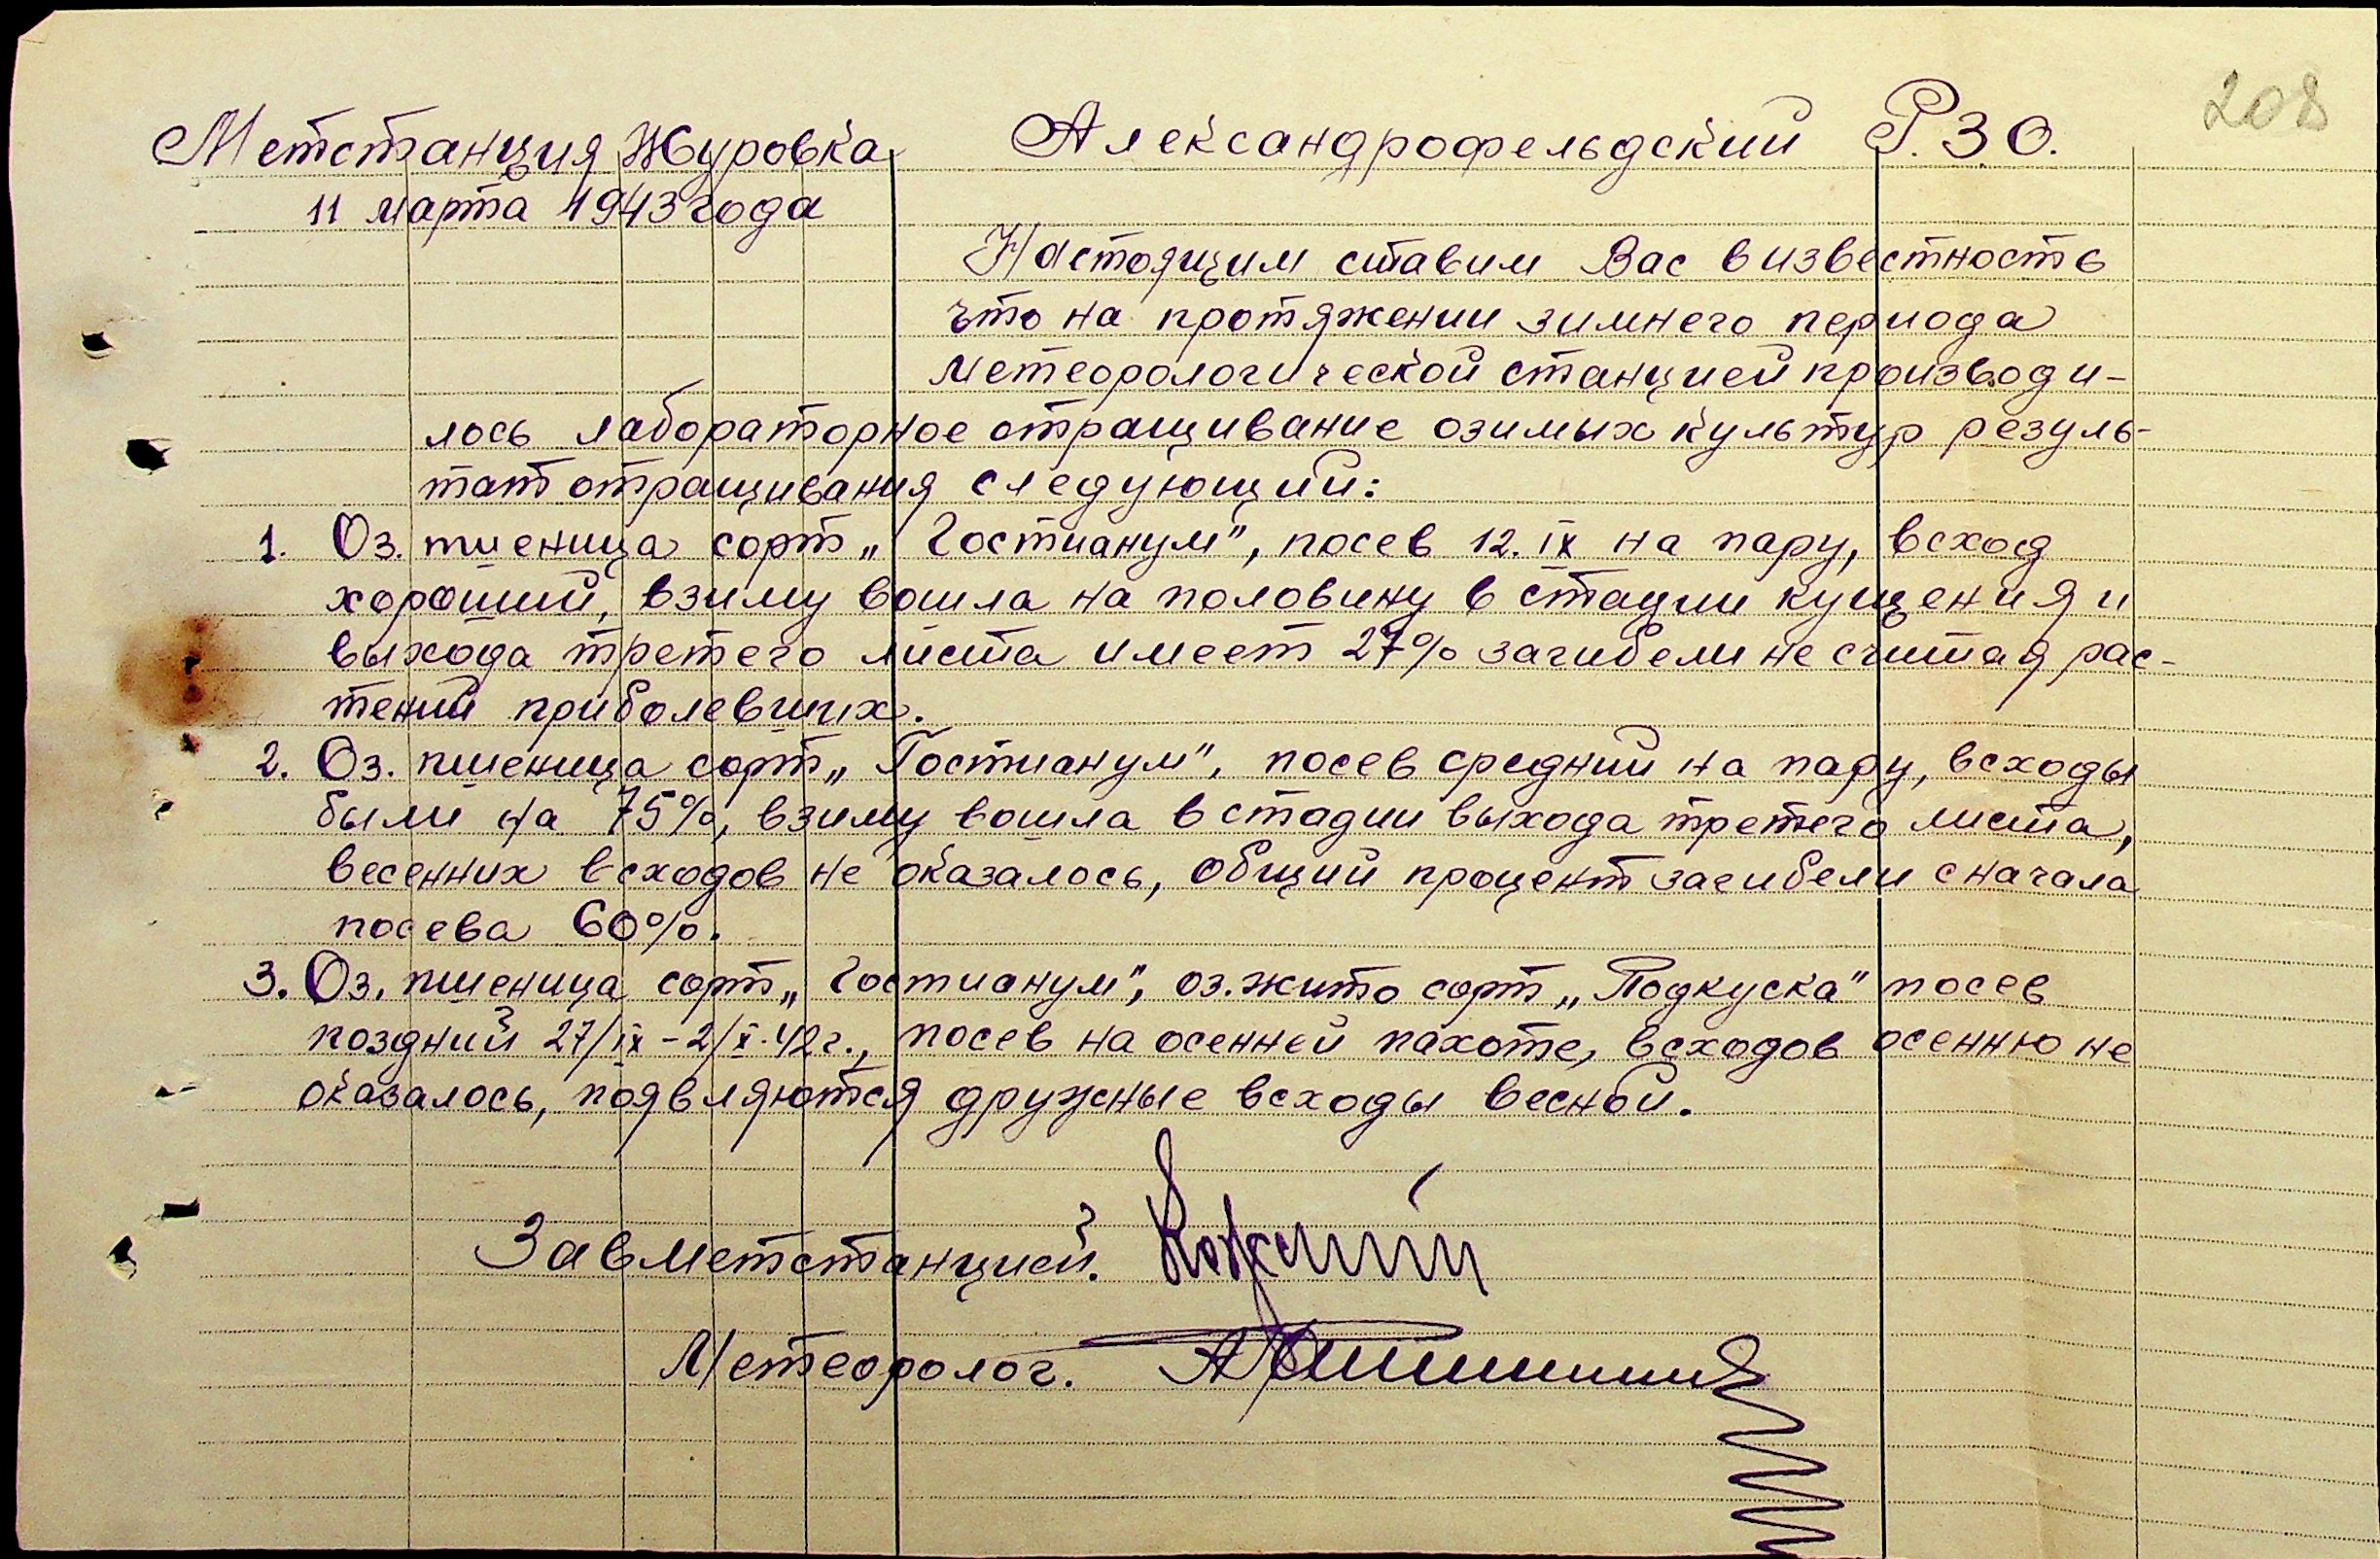 208
Метстанция Журовка
11 марта 1943 года
Александрофельдский Р.З.О.
Настоящим ставим Вас в известность
что на протяжении зимнего периода
метеорологической станцией производи-
лось лабораторное отращивание озимых культур резуль-
тат отращивания следующий:
1. Оз. пшеница сорт „Гостианум", посев 12.IX на пару, всход
хороший, взиму вошла на половину в стадии кущения и
выхода третего листа имеет 27% загибели не считая рас-
тений приболевших.
2. Оз. пшеница сорт „Гостианум", посев средний на пару, всходы
были на 75%, взиму вошла в стадии выхода третего листа,
весенних всходов не оказалось, общий процент загибели сначала
посева 60%.
3. Оз. пшеница сорт „Гостианум", оз. жито сорт „Подкуска" посев
поздний 27/IX - 2/X.42г., посев на осенней пахоте, всходов осенню не
оказалось, появляются дружные всходы весной.
Завметстанцией.
Метеоролог.